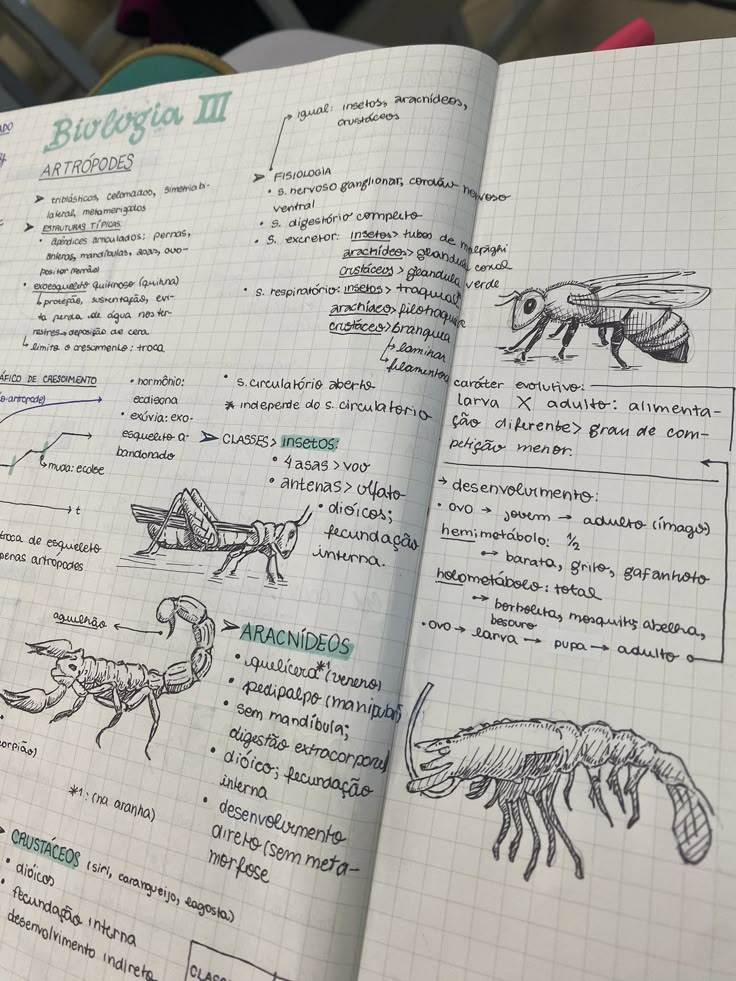 Biologia III
ARTRÓPODES
➤ triblásticos, celomados, simetria b-
lateral, metamerizados
➤ ESTRUTURAS TÍPICAS:
• apêndices articulados: pernas,
antenas, mandíbulas, asas, ovo-
positor
• exoesqueleto quitinoso (quitina)
↳ proteção, sustentação, evi-
ta perda de água nos ter-
restres → deposição de cera
↳ limita o crescimento: troca
ÁFICO DE CRESCIMENTO
muda: ecdise
t
troca de esqueleto
penas artrópodes
• hormônio:
ecdisona
• exúvia: exo-
esqueleto a-
bandonado
igual: insetos, aracnídeos,
crustáceos
➤ FISIOLOGIA
• s. nervoso ganglionar, cordão nervoso
ventral
• s. digestório completo
• s. excretor: insetos > tubos de malpighi
aracnídeos > glândula coxal
crustáceos > glândula verde
• s. respiratório: insetos > traqueia
aracnídeo > filotraqueia
crustáceo > brânquia
↳ lamina
↳ filamentosa
• s. circulatório aberto
* independe do s. circulatorio
➤ CLASSES > insetos:
• 4 asas > voo
• antenas > olfato
• dióicos;
fecundação
interna.
aguilhão
orpião)
*1: (na aranha)
➤ ARACNÍDEOS
• quelícera*1 (veneno)
• pedipalpo (manipular)
• sem mandíbula;
digestão extracorporea
• dióico; fecundação
interna
• desenvolvimento
direto (sem meta-
morfose
CRUSTÁCEOS (siri, caranguejo, lagosta)
• dióicos
• fecundação interna
desenvolvimento indireto
CLASS
caráter evolutivo:
larva X adulto: alimenta-
ção diferente > grau de com-
petição menor.
→ desenvolvimento:
• ovo → jovem → adulto (imago)
hemimetábolo: 1/2
↦ barata, grilo, gafanhoto
holometábolo: total
↦ borboleta, mosquito, abelha,
besouro
• ovo → larva → pupa → adulto